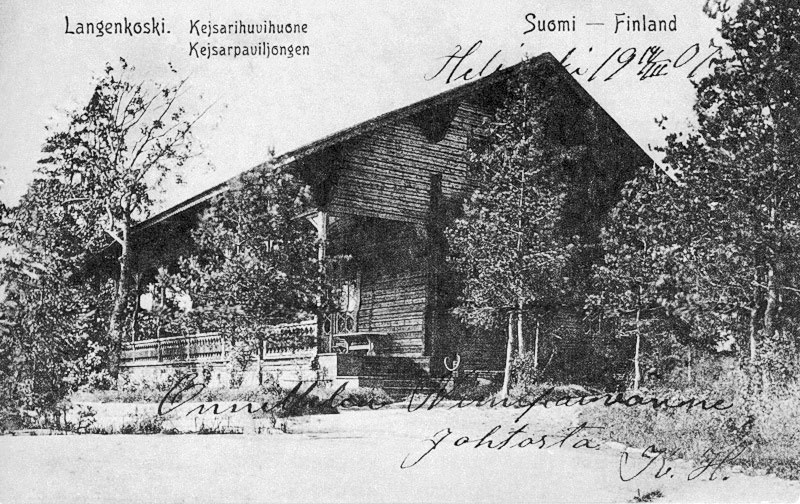 Langenkoski. Kejsarihuvihuone
Kejsarpaviljongen
Suomi — Finland
Helsinki 19 14/III 07
Onnittelu Nimipäivänne
johtosta
K. H.